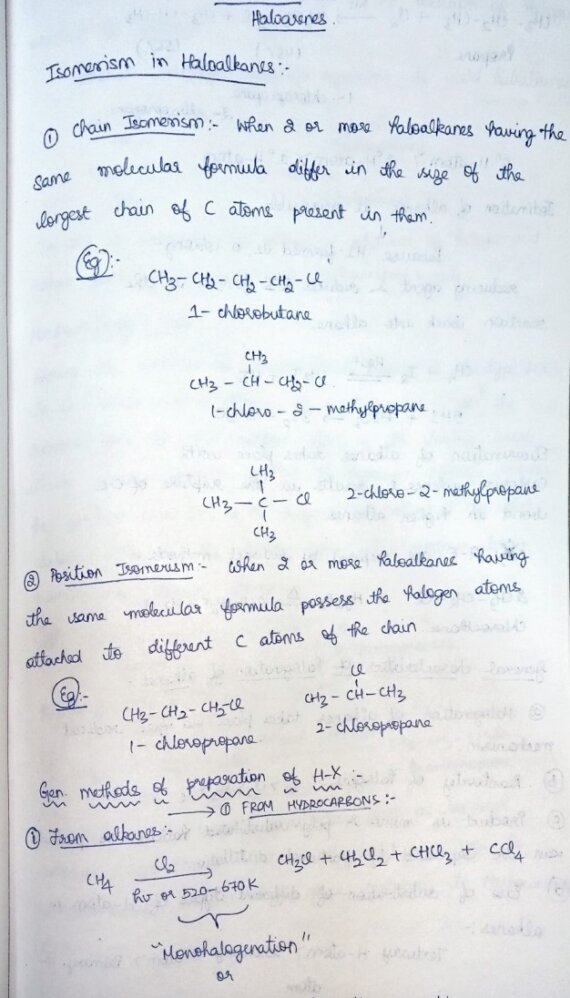 Haloarenes.
Isomerism in Haloalkanes:-
① Chain Isomerism:- When 2 or more haloalkanes having the
same molecular formula differ in the size of the
longest chain of C atoms present in them.
Eg:-
CH3 - CH2 - CH2 - CH2 - Cl
1- chlorobutane
CH3
CH3 - CH - CH2 - Cl
1-chloro - 2 - methylpropane
CH3
CH3 - C - Cl 2-chloro-2-methylpropane
CH3
② Position Isomerism:- When 2 or more haloalkanes having
the same molecular formula possess the halogen atoms
attached to different C atoms of the chain
Eg:-
Cl
CH3 - CH2 - CH2 - Cl CH3 - CH - CH3
1- chloropropane 2- chloropropane
Gen. methods of preparation of H-X :-
→ ① FROM HYDROCARBONS :-
① From alkanes:-
Cl2
CH4 → CH3Cl + CH2Cl2 + CHCl3 + CCl4
hν or 520-670K
"Monohalogenation"
or